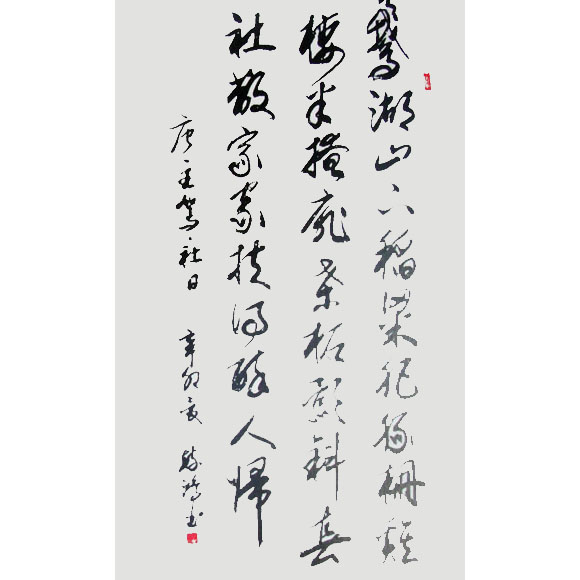 鵝湖山下稻粱肥豚柵雞
棲半掩扉桑柘影斜春
社散家家扶得醉人歸
唐·王駕·社日 辛卯夏 书